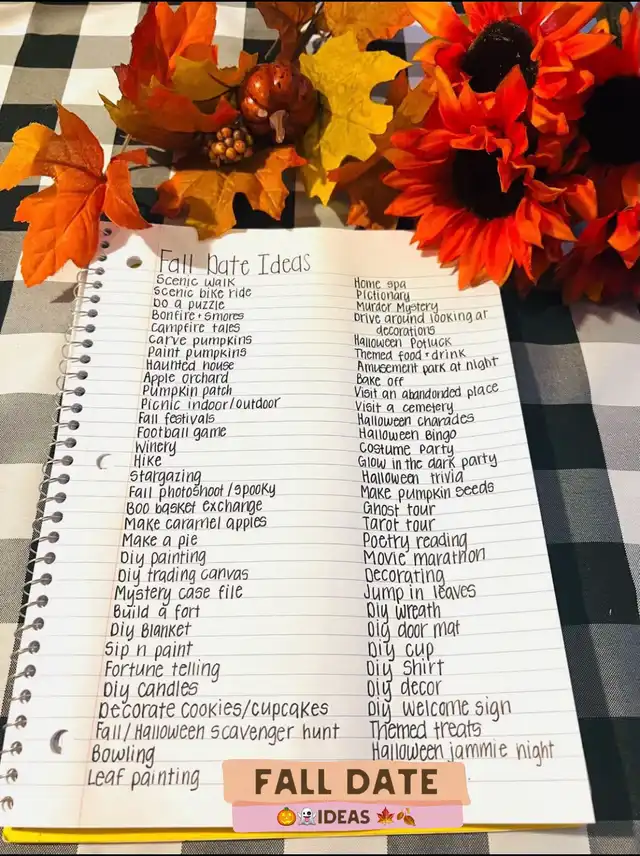 Fall Date Ideas
Scenic walk
Scenic bike ride
Do a puzzle
Bonfire + smores
Campfire tales
Carve pumpkins
Paint pumpkins
Haunted house
Apple orchard
Pumpkin patch
Picnic indoor/outdoor
Fall festivals
Football game
Winery
Hike
Stargazing
Fall photoshoot/spooky
Boo basket exchange
Make caramel apples
Make a pie
Diy painting
Diy trading canvas
Mystery case file
Build a fort
Diy Blanket
Sip n paint
Fortune telling
Diy candles
Decorate cookies/cupcakes
Fall/Halloween scavenger hunt
Bowling
Leaf painting
Home spa
Pictionary
Murder Mystery
Drive around looking at
decorations
Halloween Potluck
Themed food + drink
Amusement park at night
Bake off
Visit an abandonded place
Visit a cemetery
Halloween charades
Halloween Bingo
Costume Party
Glow in the dark party
Halloween trivia
Make pumpkin seeds
Ghost tour
Tarot tour
Poetry reading
Movie marathon
Decorating
Jump in leaves
Diy wreath
Dig door mat
Diy cup
Diy Shirt
Diy decor
Diy welcome sign
Themed treats
Halloween jammie night
FALL DATE
🎃👻IDEAS 🍁🍂